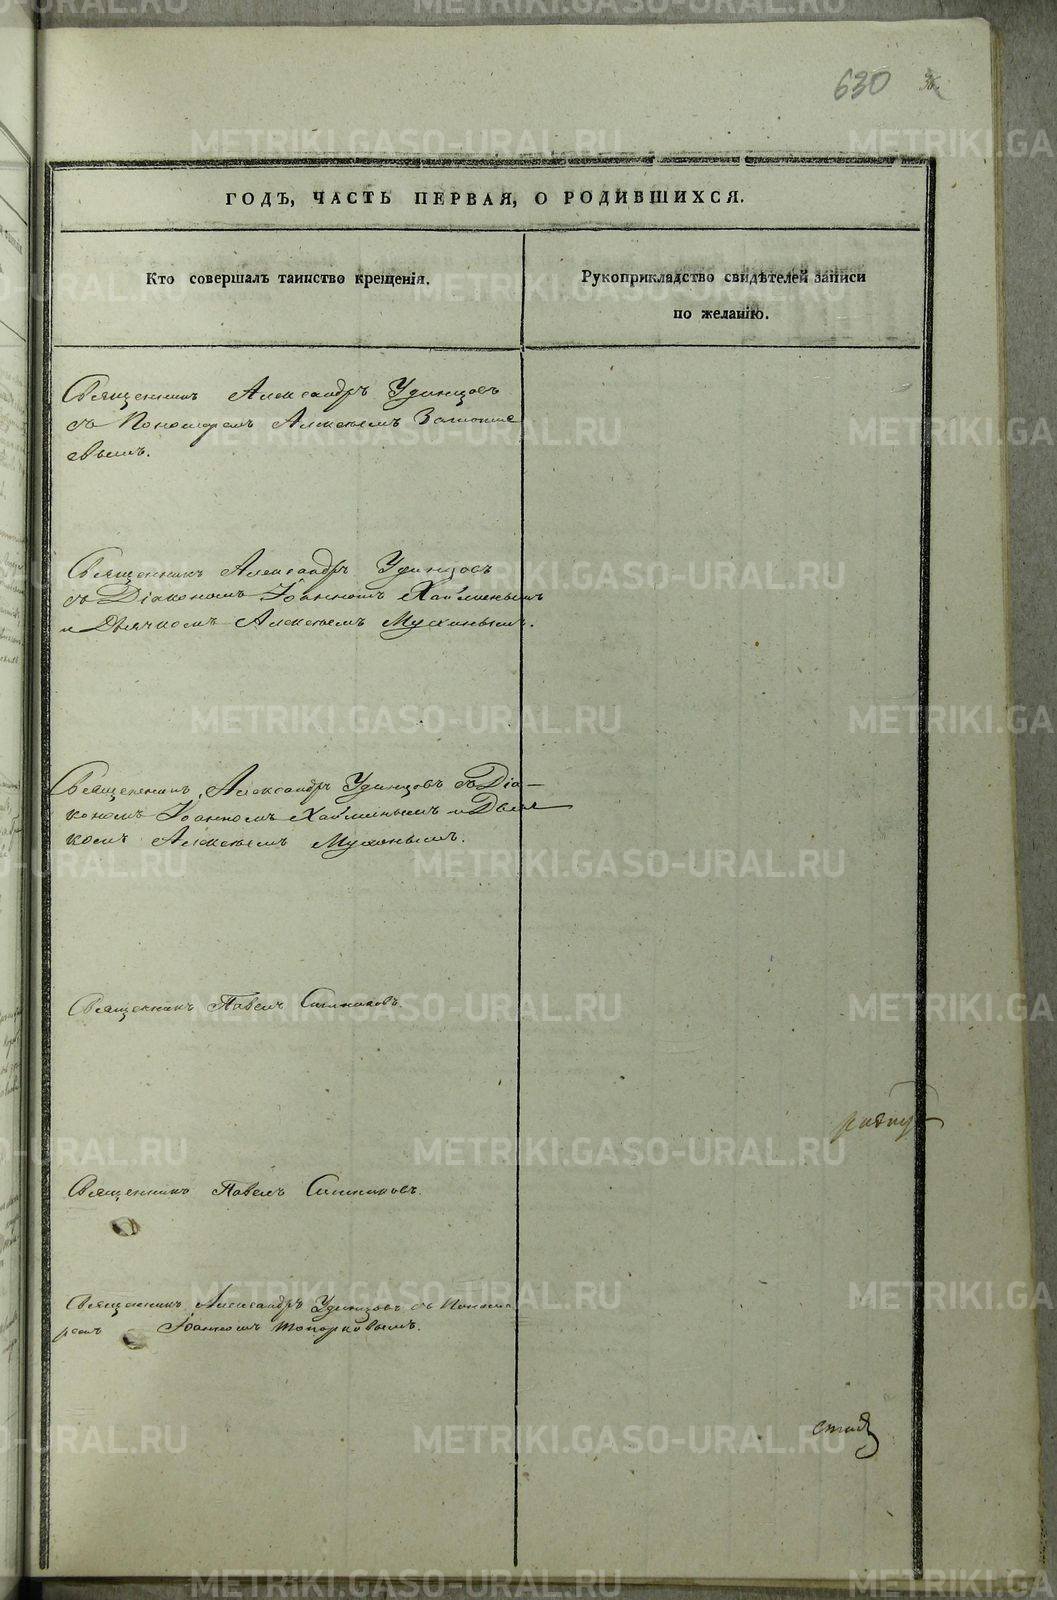 630
36.
ГОДЪ, ЧАСТЬ ПЕРВАЯ, О РОДИВШИХСЯ.
Кто совершалъ таинство крещенія.
Рукоприкладство свидѣтелей записи
по желанію.
Священникъ Александръ Удинцовъ
съ Пономаремъ Алексѣемъ
вымъ.
Священникъ Александръ Удинцовъ
съ Діакономъ Іоанномъ Хайминымъ
и Дьячкомъ Алексѣемъ Мухинымъ.
Священникъ Александръ Удинцовъ съ Діа-
кономъ Іоанномъ Хайминымъ и Дьяч
комъ Алексѣемъ Мухинымъ.
Священникъ Павелъ Ситниковъ.
Священникъ Павелъ Ситниковъ.
Священникъ Александръ Удинцовъ съ Понома
ремъ Іоанномъ Топорковымъ.
METRIKI.GASO-URAL.RU